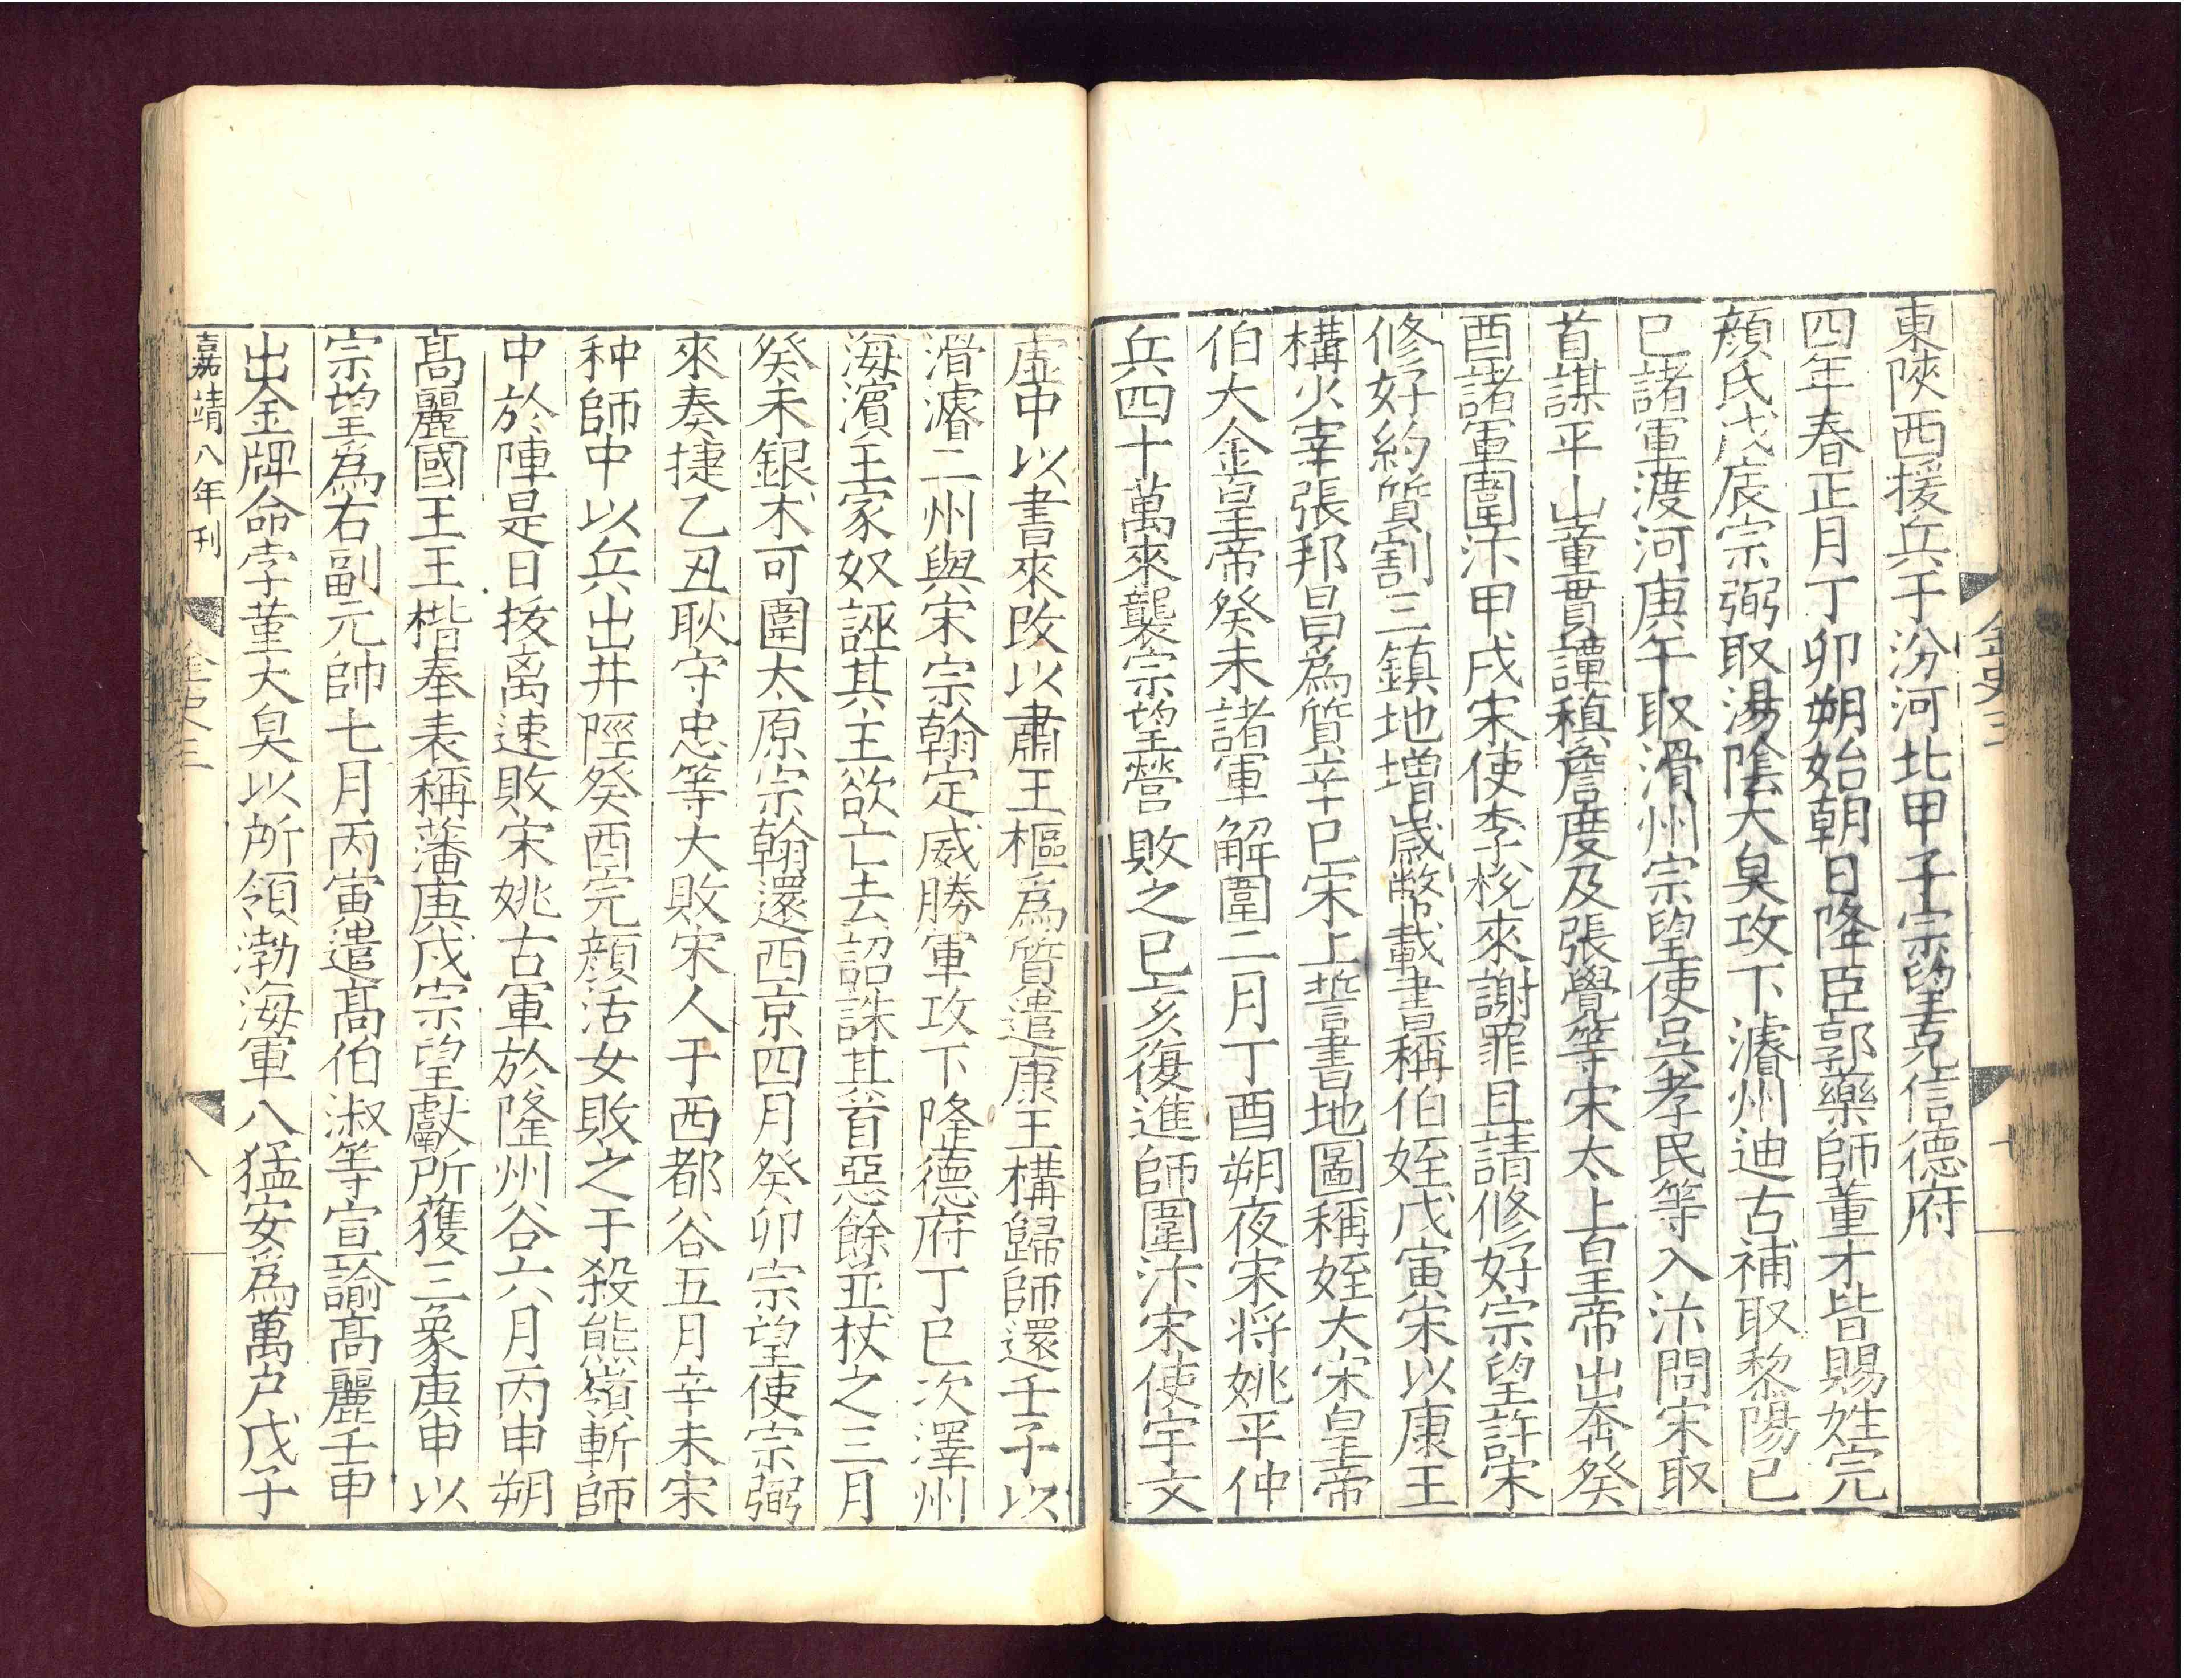 東陜西援兵于汾河北甲子宗望克信德府
四年春正月丁卯朔始朝日降臣郭藥師董才皆賜姓完
顏氏戊辰宗弼取湯陰大㚖攻下濬州迪古補取黎陽己
巳諸軍渡河庚午取滑州宗望使吳孝民等入汴問宋取
首謀平山童貫譚稹詹度及張覺等宋太上皇帝出奔癸
酉諸軍圍汴甲戌宋使李梲來謝罪且請修好宗望許宋
修好約質割三鎮地增歲幣載書稱伯姪戊寅宋以康王
構少宰張邦昌為質辛巳宋上誓書地圖稱姪大宋皇帝
伯大金皇帝癸未諸軍解圍二月丁酉朔夜宋将姚平仲
兵四十萬來襲宗望營敗之己亥復進師圍汴宋使宇文
虛中以書來改以肅王樞為質遣康王構歸師還壬子以
滑濬二州與宋宗翰定威勝軍攻下隆德府丁巳次澤州
海濱王家奴誣其主欲亡去詔誅其首惡餘並杖之三月
癸未銀朮可圍太原宗翰還西京四月癸卯宗望使宗弼
來奏捷乙丑耿守忠等大敗宋人于西都谷五月辛未宋
种師中以兵出井陘癸酉完顏活女敗之于殺熊嶺斬師
中於陣是日拔离速敗宋姚古軍於隆州谷六月丙申朔
高麗國王王楷奉表稱藩庚戌宗望獻所獲三象庚申以
宗望為右副元帥七月丙寅遣高伯淑等宣諭高麗壬申
出金牌命孛堇大㚖以所領渤海軍八猛安為萬户戊子
嘉靖八年刊
金史三
八